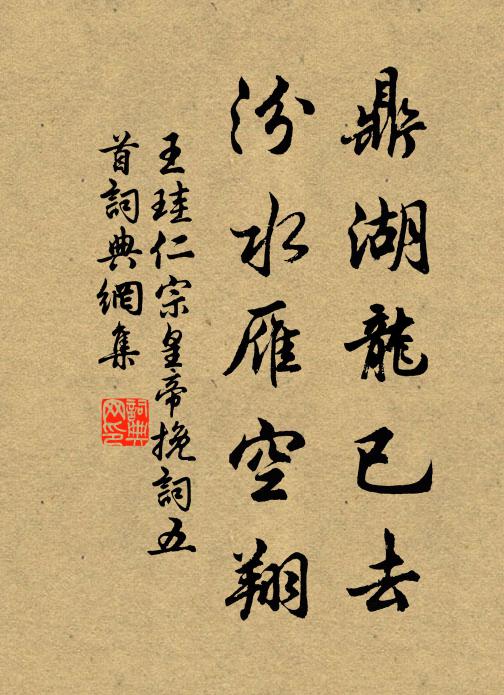 鼎湖龍已去
汾水雁空翔
王珪仁宗皇帝挽詞五
首詞典網集
詞典
网印